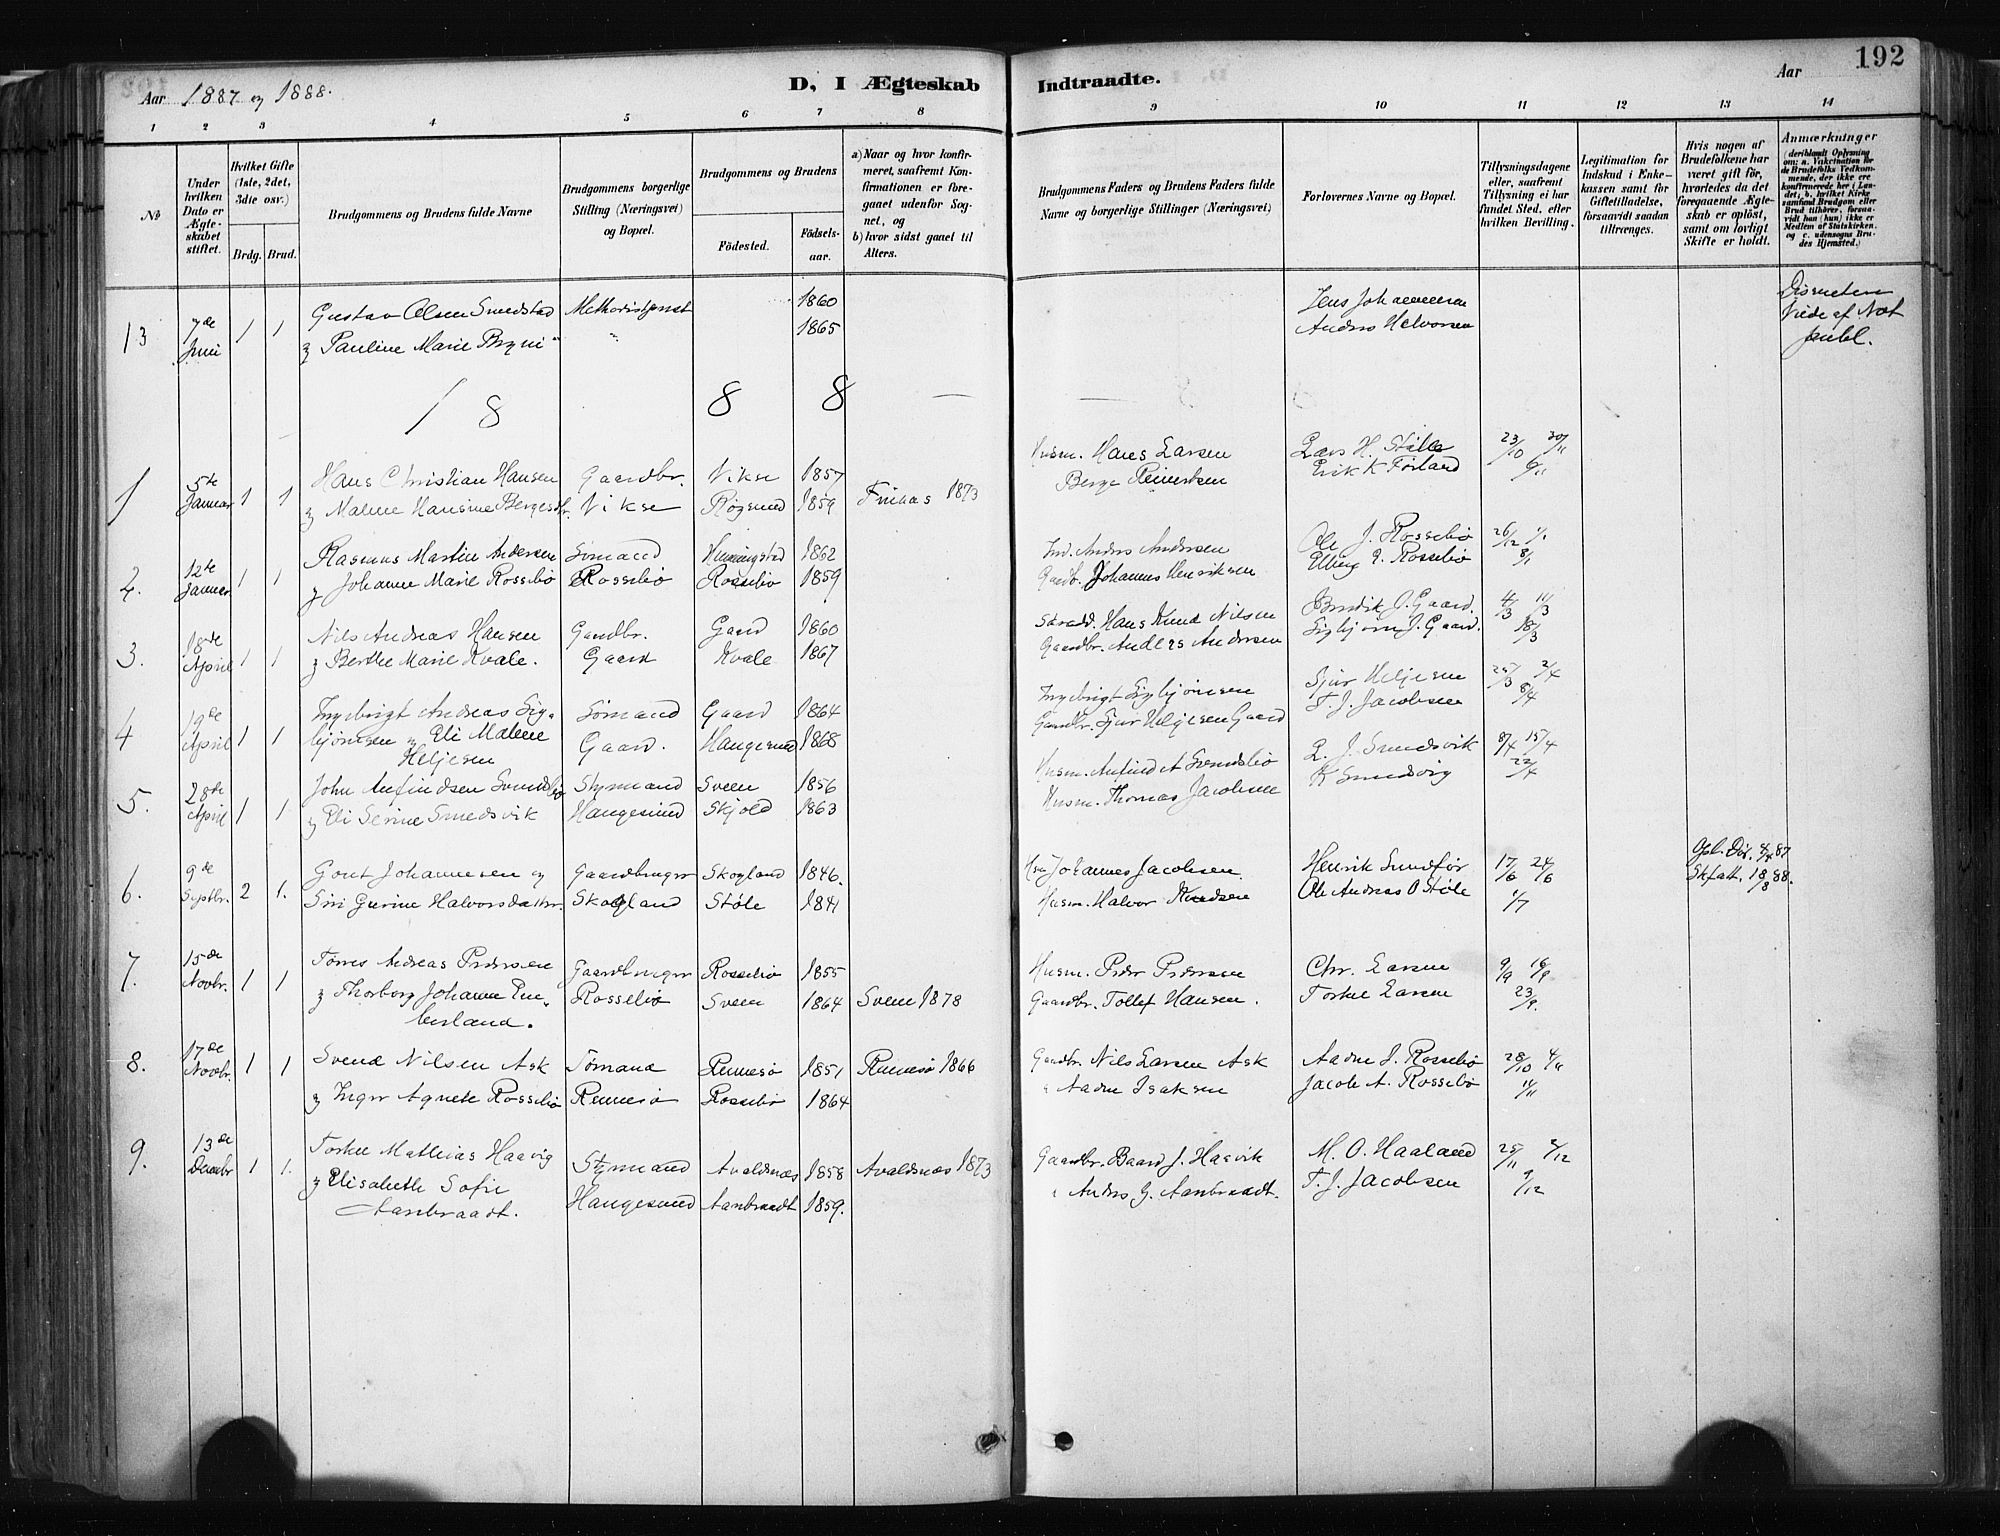 Aar 1887 og 1888.
D, I Ægteskab Indtraadte.
Aar
192
1 2 3 4 5 6 7 8 9 10 11 12 13 14
№
Under hvilken Dato er Ægteskabet stiftet.
Hvilket Gifte (1ste, 2det, 3die osv.)
Brdg. Brud.
Brudgommens og Brudens fulde Navne
Brudgommens borgerlige Stilling (Næringsvei) og Bopæl.
Brudgommens og Brudens
Födested.
Födsels-aar.
a) Naar og hvor konfirmeret, saafremt Konfirmationen er foregaaet udenfor Sognet, og
b) hvor sidst gaaet til Alters.
Brudgommens Faders og Brudens Faders fulde Navne og borgerlige Stillinger (Næringsvei)
Forlovernes Navne og Bopæl.
Tillysningsdagene eller, saafremt Tillysning ei har fundet Sted, efter hvilken Bevilling.
Legitimation for Indskud i Enkekassen samt for Giftetilladelse, forsaavidt saadan tiltrænges.
Hvis nogen af Brudefolkene har været gift för, hvorledes da det foregaaende Ægteskab er oplöst, samt om lovligt Skifte er holdt.
Anmærkninger
(deriblandt Oplysning om: a. Vakcination for de Brudefolks Vedkommende, der ikke ere konfirmerede her i Landet, b. hvilket Kirkesamfund Brudgom eller Brud tilhörer, forsaavidt han (hun) ikke er Medlem af Statskirken, og c. udensogns Brudes Hjemsted.)
13 7de Juni 1 1 Gustav Olsen Smedstad Methodistprest 1860 Jens Johannesen
& Pauline Marie Bryni " 1865 Anders Halvorsen
Vide af Not
1 8 8 8
1 5te Januar 1 1 Hans Christian Hansen Gaardbr. Vikse 1857 Husm. Hans Larsen Lars H. Støle 23/10 30/11
& Malene Hansine Bergesdtr. Vikse Røgsund 1859 Finaas 1873 Berge Reinertsen Erik K Førland 6/11
2. 12te Januar 1 1 Rasmus Martin Andersen Sømand Hemmingstad 1862 Ind. Anders Andersen Ole J. Rossebø 26/12 1/1
& Johanne Marie Rossebø Rossebø Rossebø 1859 Gaardb. Johannes Henriksen Elling E. Rossebø 8/1
3. 18de April 1 1 Nils Andreas Hansen Gaardbr. Gaard 1860 Hans Knud Nilsen Bendik J. Gaard. 4/3 11/3
& Berthe Marie Kvale. Gaard Kvale 1867 Gaardbr. Anders Andersen Sigbjørn J. Gaard. 18/3
4 19de April 1 1 Ingebrigt Andreas Sig- Sømand Gaard 1864 Ingebrigt Sigbjørnsen Sjur Heljesen 25/3 2/4
bjørnsen & Eli Malene Gaard. Haugesund 1868 Gaardbr. Sjur Heljesen Gaard T. J. Jacobsen 8/4
Heljesen
5. 28de April 1 1. John Anfindsen Svendsbø Styrmand Sveen 1856 Husm. Anfind A Svendsbø L. J. Smedsvik 8/4 15/4
& Eli Serine Smedsvik Haugesund Skjold 1863 Husm. Thomas Jacobsen K Smedsvig 22/4
6. 9de Septbr. 2 1. Gout Johannesen og Gaardbruger Skogland 1846. Johannes Jacobsen. Henrik Sundför 17/6 24/6
Siri Gurine Halvorsdatter. Skogland Støle 1841 Husm. Halvor Knudsen Ole Andreas O Støle 1/7
7. 15de Novbr. 1 1 Tørres Andreas Pedersen Gaardbruger Rossebø 1855 Husm. Peder Pedersen Chr. Larsen 9/9 16/9
& Thorborg Johanne Em- Rossebø Sveen 1864 Sveen 1878 Gaardbr. Tollef Hansen. Torkel Larsen 23/9.
berland.
8. 17de Novbr. 1 1 Svend Nilsen Ask Sømand Rennesø 1851 Rennesø 1866 Gaardbr. Nils Larsen Ask Aadne J. Rossebø 28/10 4/11
& Inger Agnete Rossebø Rennesø Rossebø 1864 " Aadne Isaksen Jacob A. Rossebø 11/11
9. 13de Decembr 1 1. Torkel Mathias Haavig Styrmand Avaldsnæs 1858 Avaldsnæs 1873 Gaardbr. Baard J. Haavik M. O. Haaland 25/11 2/12
& Elisabeth Sofie Haugesund Aanbraadt 1859. " Anders J. Aanbraadt. T. J. Jacobsen 9/12
Aanbraadt.